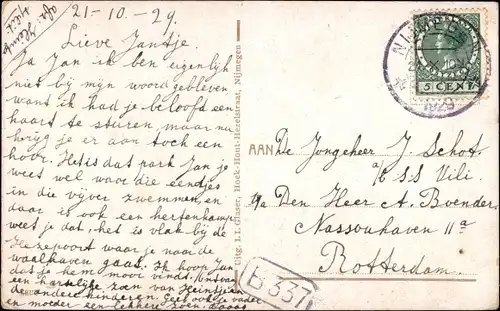 afz. Heint
21-10-29.
Lieve Jantje.
Ja Jan ik ben eigenlijk
niet bij mijn woord gebleven
want ik had je beloofd een
kaart te sturen, maar nu
krijg je er aan toch een
hoor. Het is dat park Jan je
weet wel waar die eendjes
in die vijver zwemmen, en
daar is ook een hertenkamp
weet je dat, het is vlak bij de
Hezepoort waar je naar de
waalhaven gaat. Ik hoop Jan
dat je hem mooi vindt. Ontvang
een hartelijke zoen van Heintje en
de andere kinderen. Geef ook je vader
en moeder een lekkere zoen.
Uitg. I.I. Glaser, Hoek-Hout-Hezelstraat, Nijmegen
NIJMEGEN
1929
5 CENT
AAN De Jongeheer J. Schot.
a/b S.S Vili.
p/a Den Heer A. Boender
Nassouhaven 11a
Rotterdam.
B 337